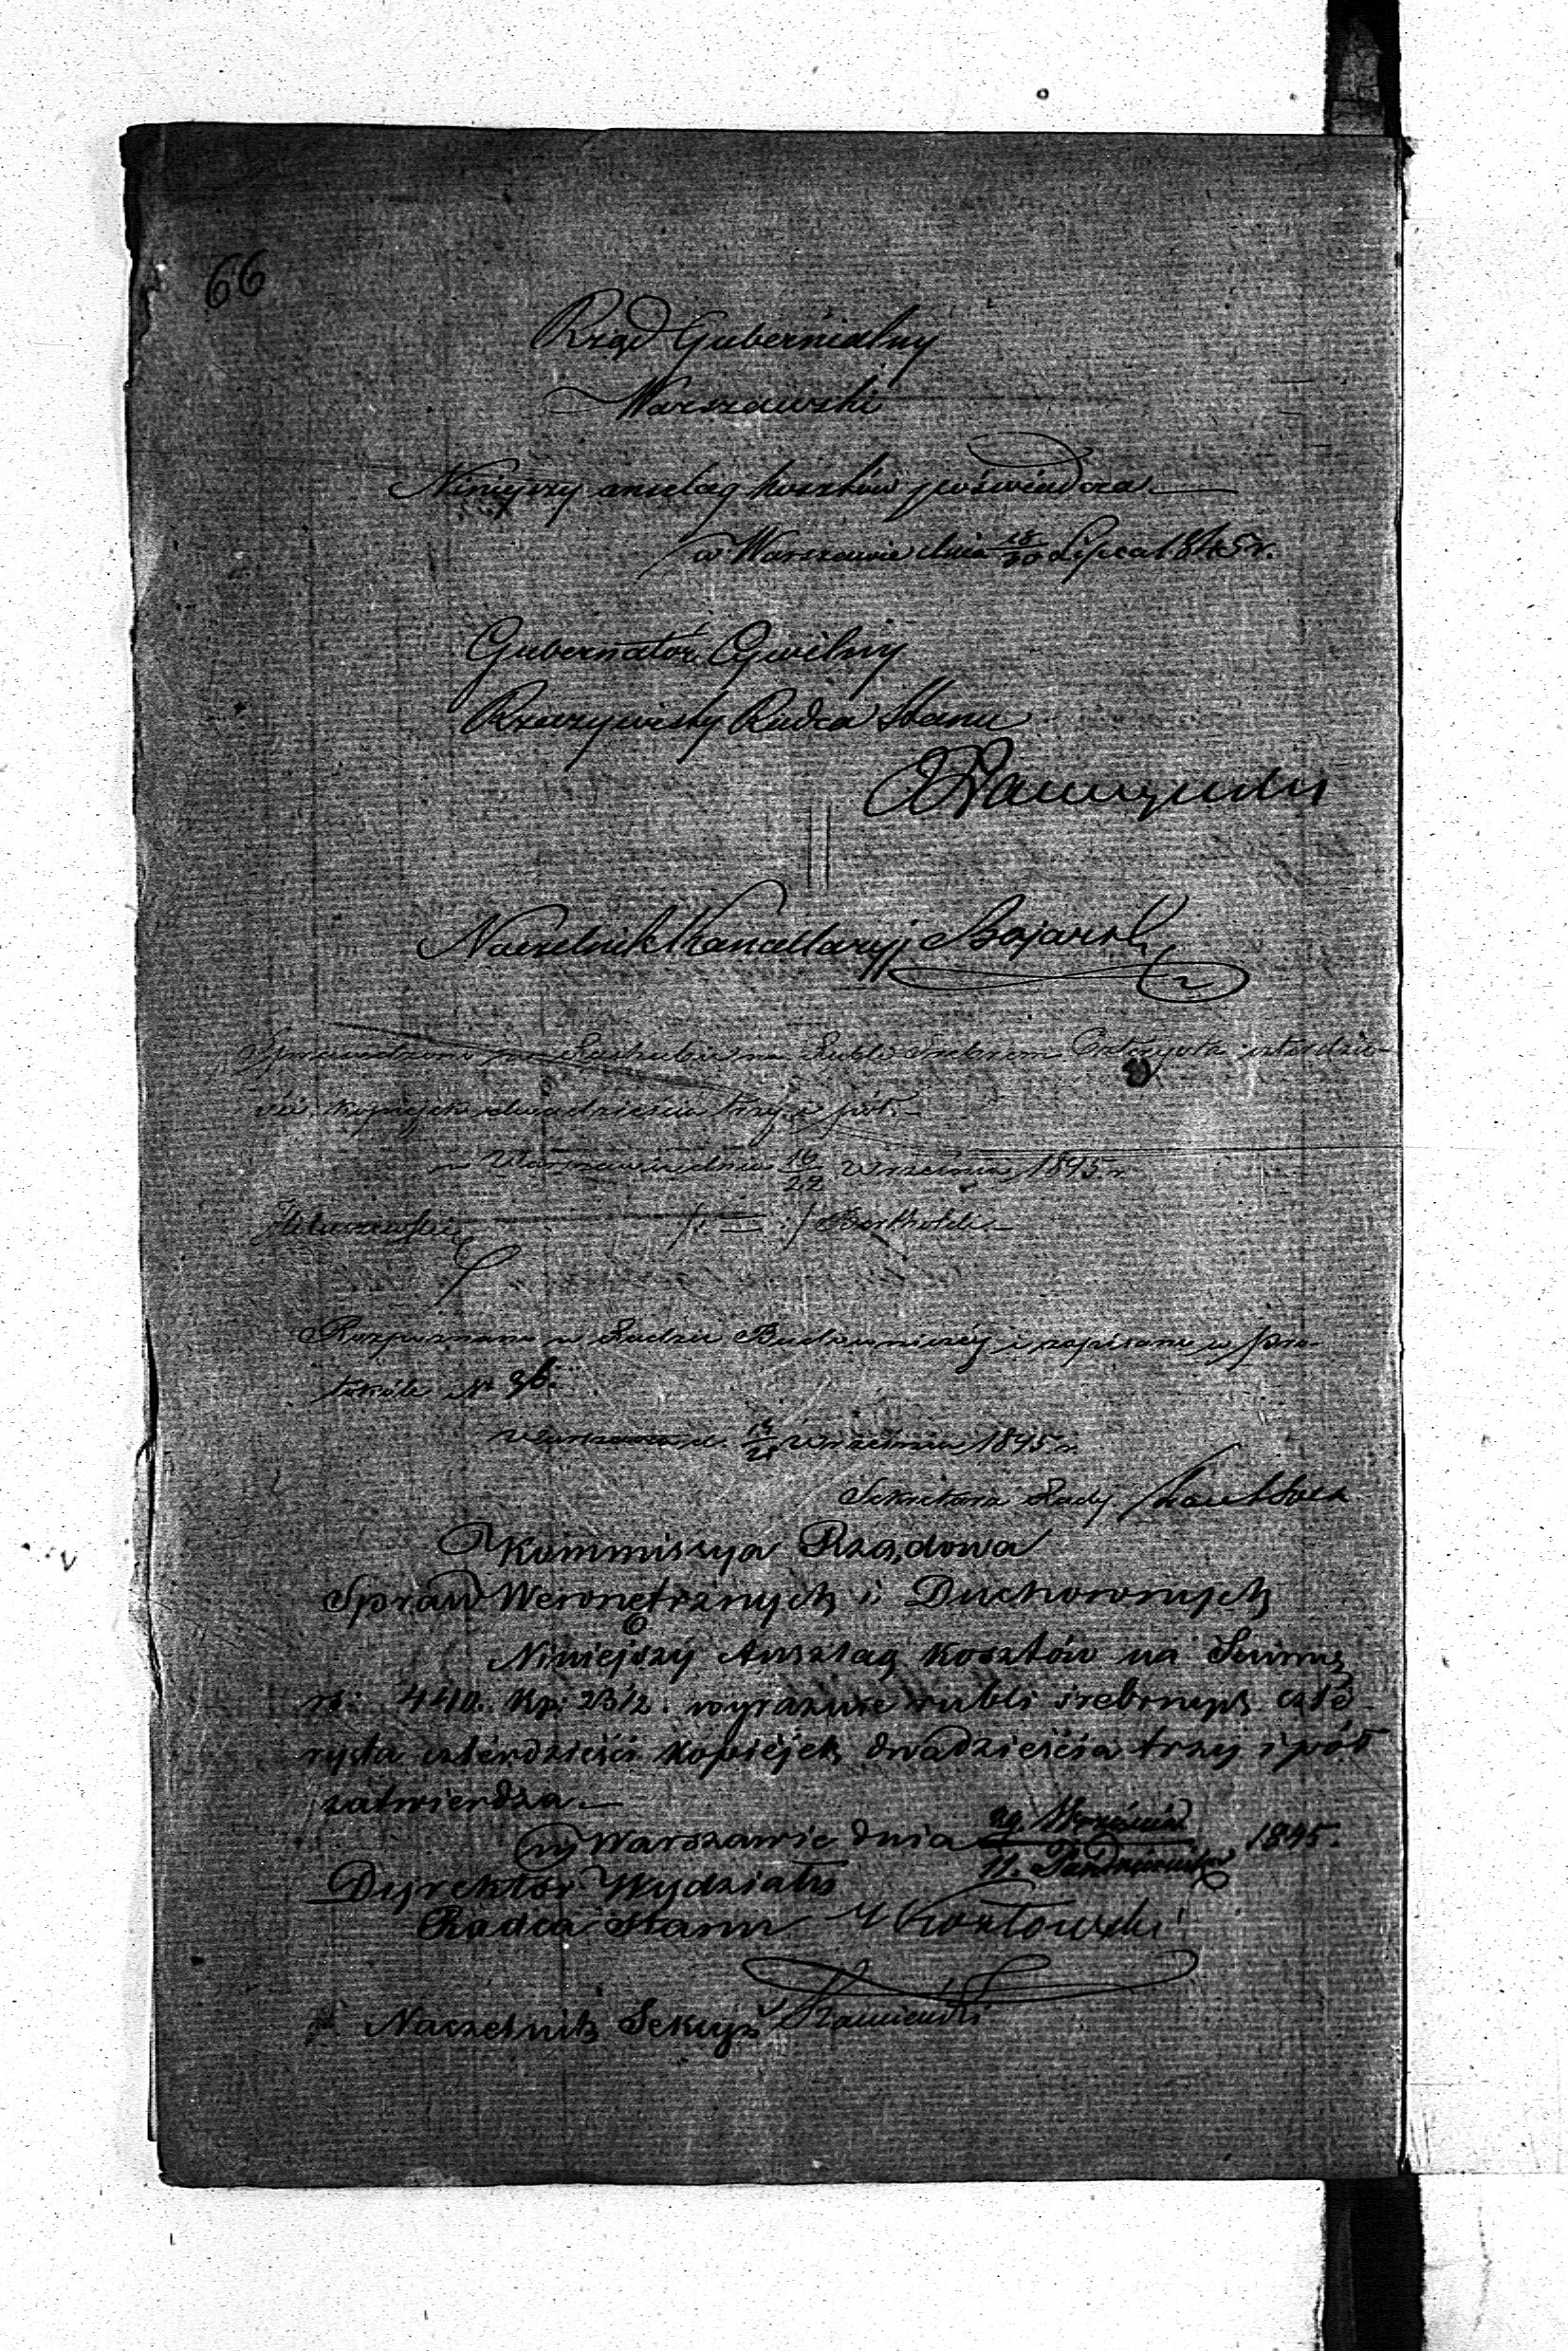 66
Rząd Gubernialny
Warszawski
Niniejszy anszlag kosztów poświadcza
w Warszawie dnia 18/30 Lipca 1845 r.
Gubernator Cywilny
Rzeczywisty Radca Stanu
Naczelnik Kancellaryi
Sprawdzono na Rubli srebrem Czterysta czterdzie-
ści kopiejek dwadzieścia trzy i pół.
w Warszawie dnia 10/22 Września 1845 r.
Rozpoznano w Radzie Budowniczéj i zapisano w pro-
tokóle N°
Warszawa d. Września 1845 r.
Sekretarz Rady
Kommissya Rządowa
Spraw Wewnętrznych i Duchownych
Niniejszy Anszlag kosztów na Summę
rs: 440. kp: 23 1/2. wyraźnie rubli srebrnych czte-
rysta czterdzieści kopiejek dwadzieścia trzy i pół
zatwierdza.
w Warszawie dnia 29. Września / 11. Października 1845.
Dyrektor Wydziału
Radca Stanu Kozłowski
Naczelnik Sekcyi Kamieński